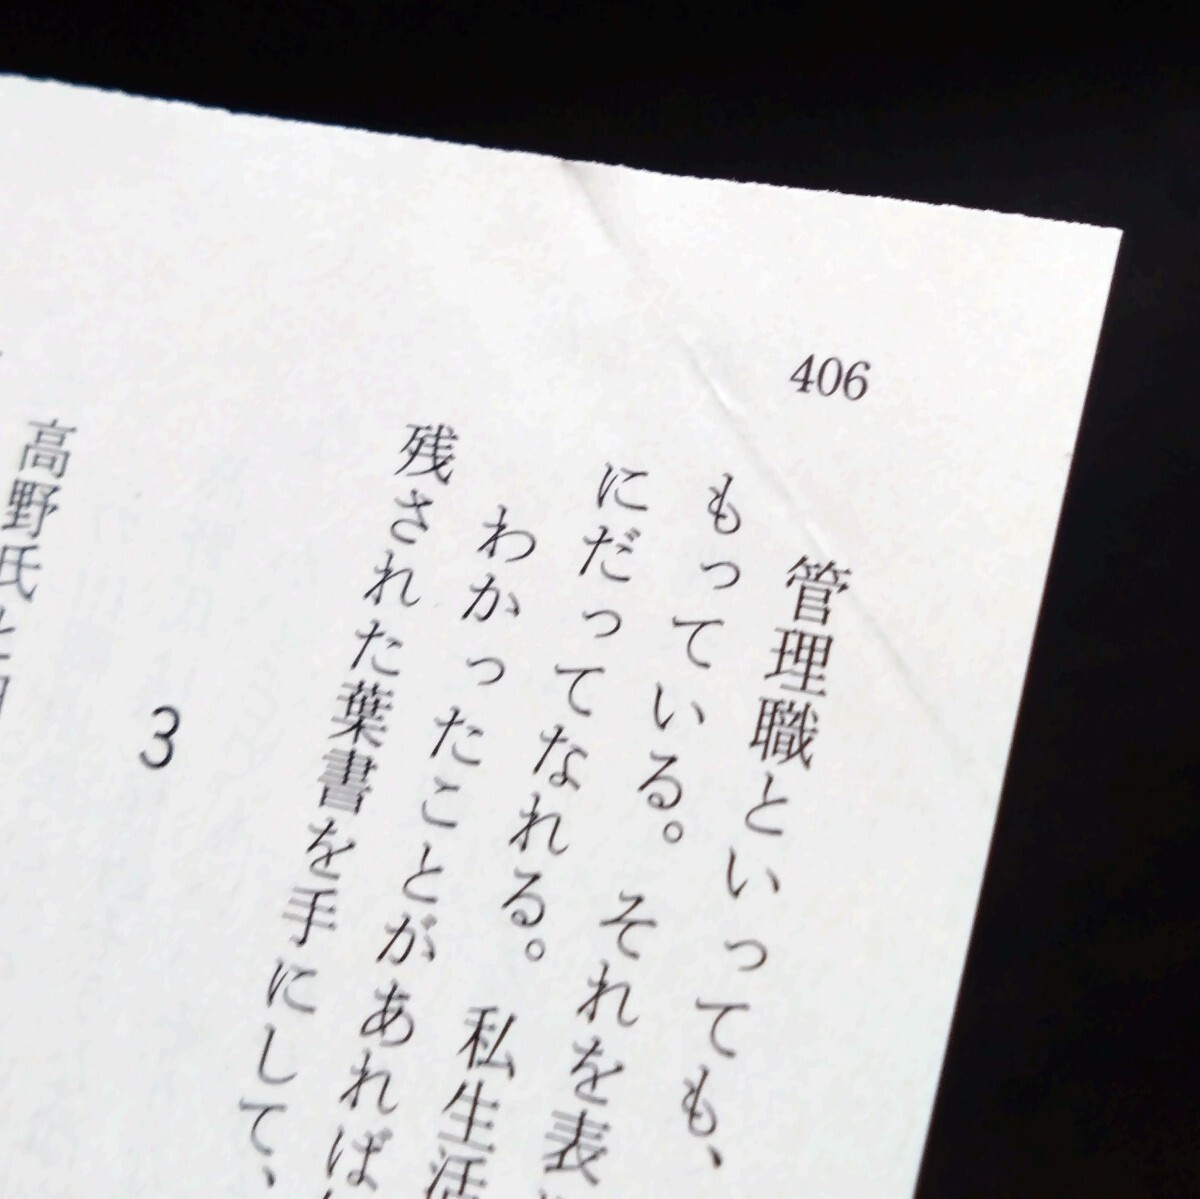 406
管理職といっても、
もっている。それを表
にだってなれる。私生活
わかったことがあれば
残された葉書を手にして、
3
高野氏